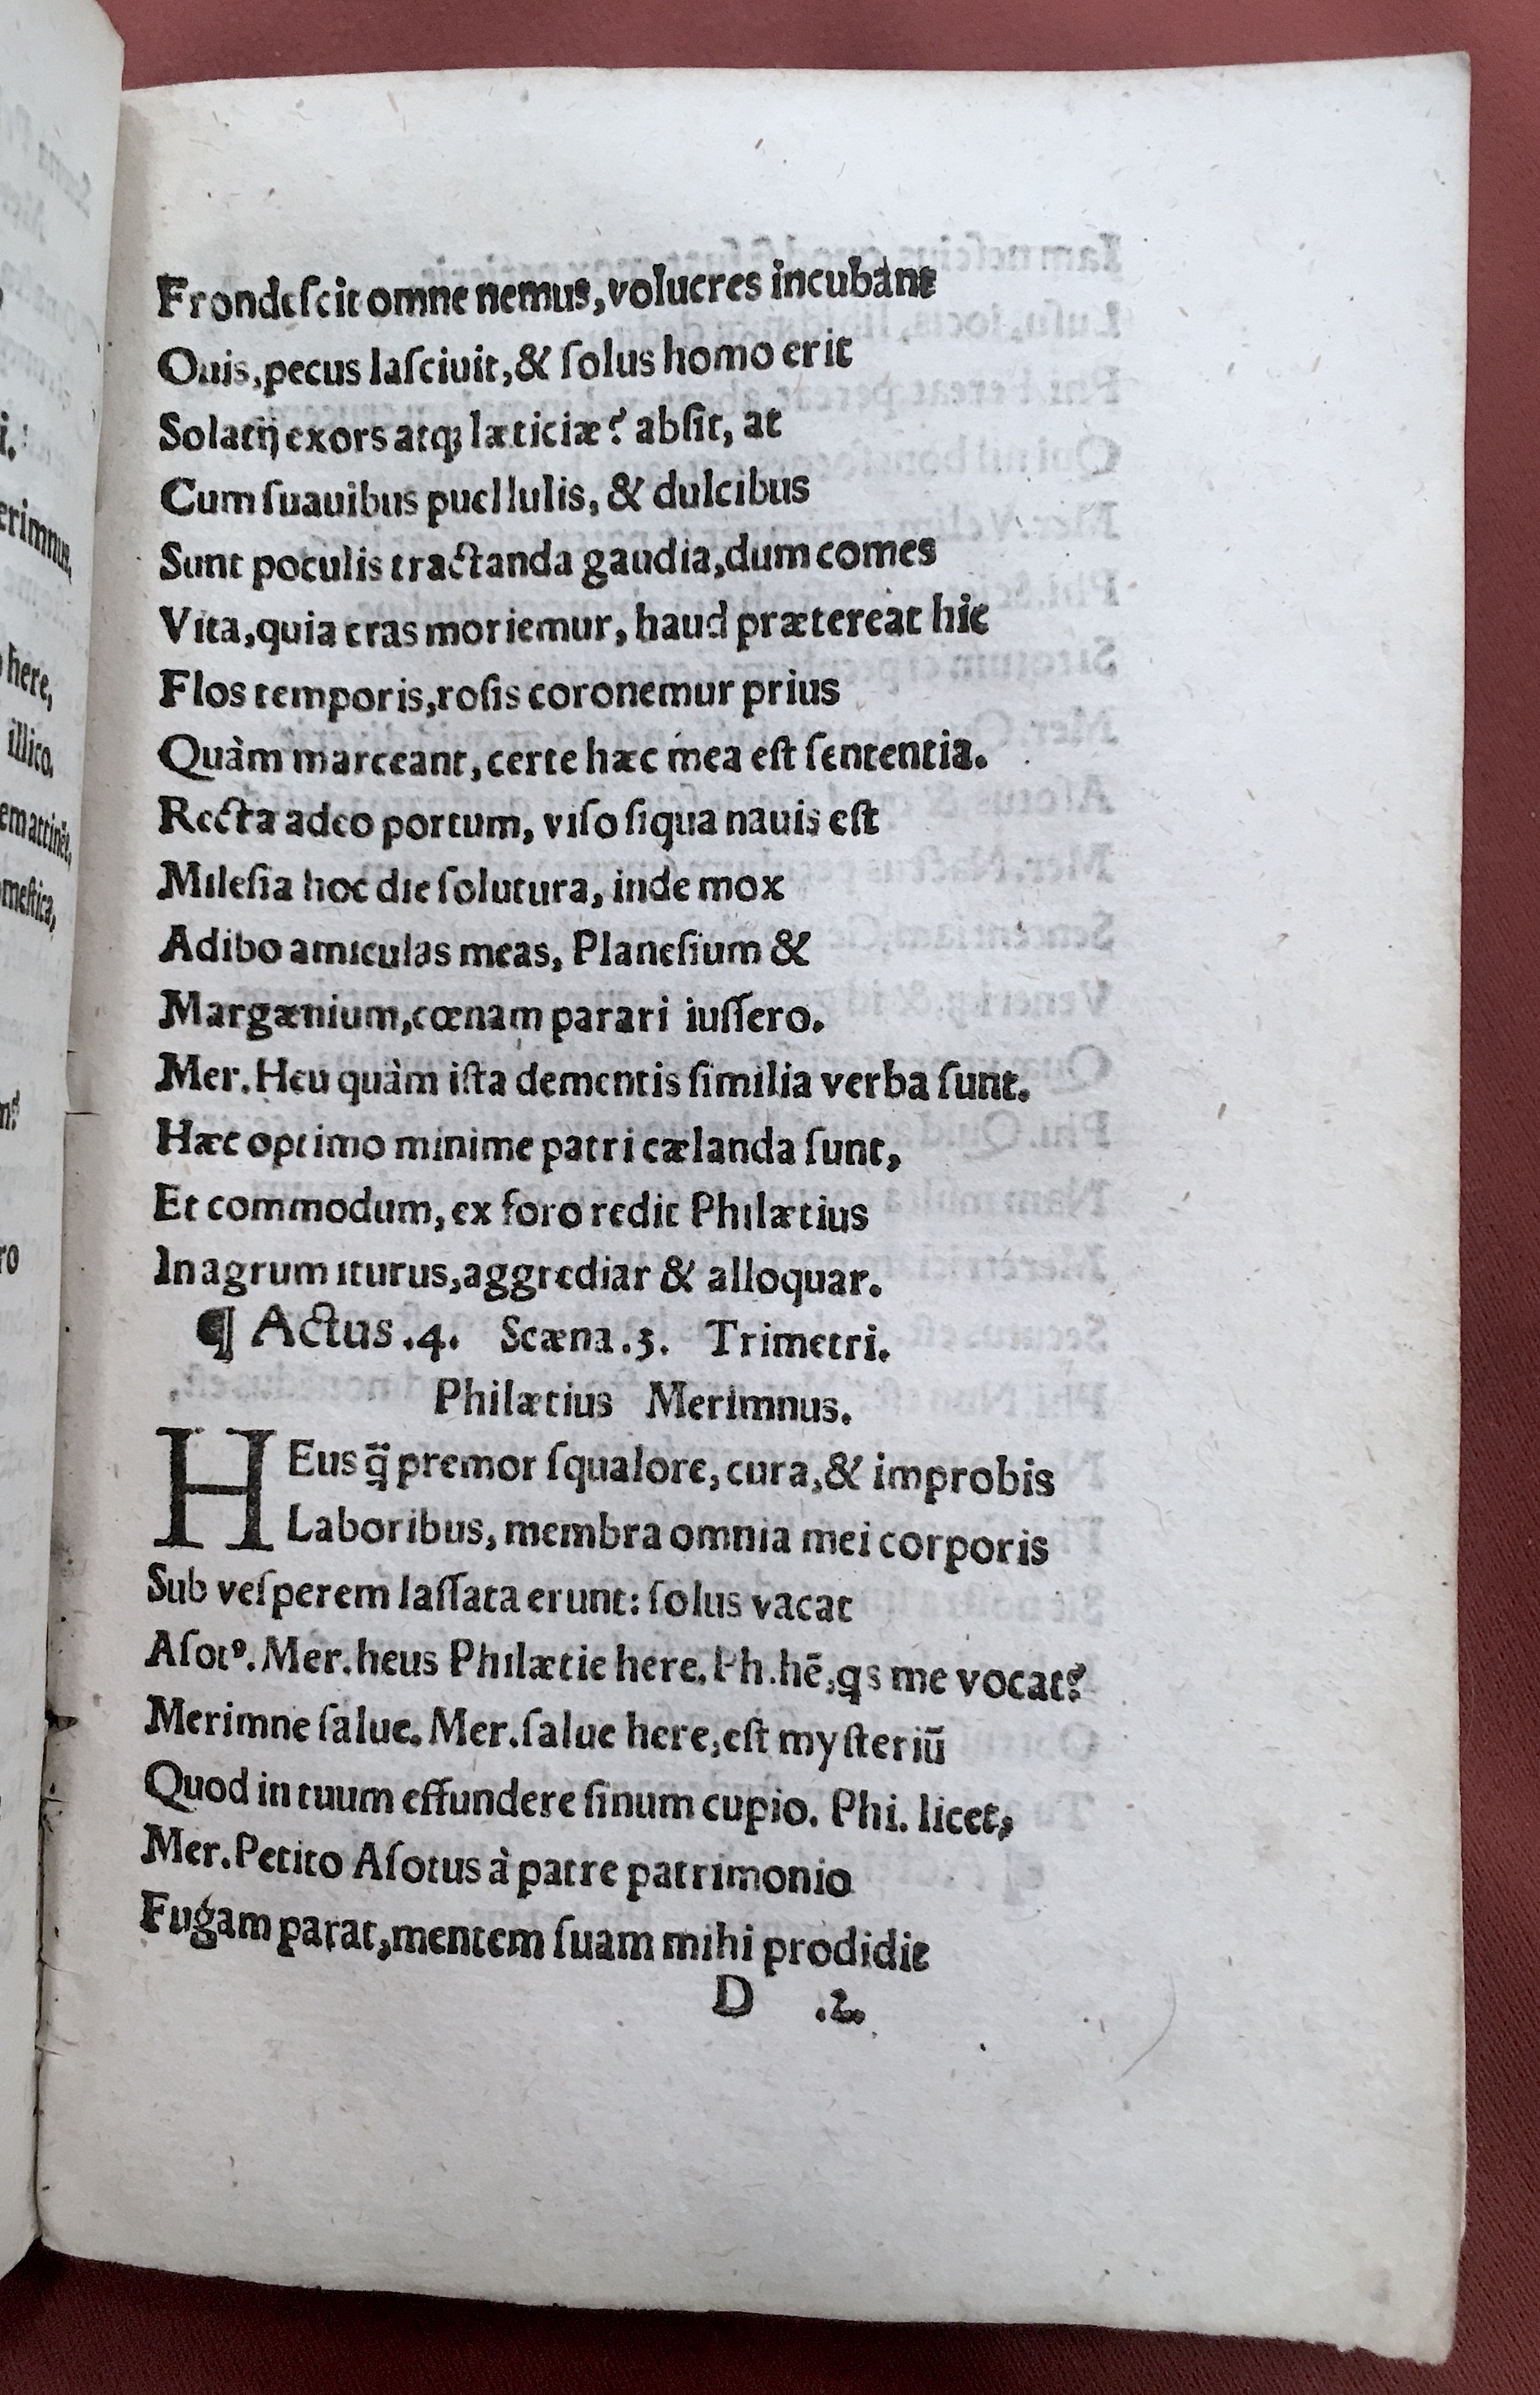 Frondeſcit omne nemus, volucres incubant
Ouis, pecus laſciuit, & ſolus homo erit
Solatij exors atq; læticiæ? abſit, at
Cum ſuauibus puellulis, & dulcibus
Sunt poculis tractanda gaudia, dum comes
Vita, quia cras moriemur, haud prætereat hic
Flos temporis, roſis coronemur prius
Quàm marceant, certe hæc mea eſt ſententia.
Recta adeo portum, viſo ſiqua nauis eſt
Mileſia hoc die ſolutura, inde mox
Adibo amiculas meas, Planeſium &
Margænium, cœnam parari iuſſero.
Mer. Heu quàm iſta dementis ſimilia verba ſunt.
Hæc optimo minime patri cælanda ſunt,
Et commodum, ex foro redit Philætius
In agrum iturus, aggrediar & alloquar.
¶ Actus .4. Scæna .3. Trimetri.
Philætius Merimnus.
HEus q̈ premor ſqualore, cura, & improbis
Laboribus, membra omnia mei corporis
Sub veſperem laſſata erunt: ſolus vacat
Aſotꝰ. Mer. heus Philætie here. Ph. hē, qs me vocat?
Merimne ſalue. Mer. ſalue here, eſt myſteriū
Quod in tuum effundere ſinum cupio. Phi. licet,
Mer. Petito Aſotus à patre patrimonio
Fugam parat, mentem ſuam mihi prodidit
D .2.
erimnus.
here,
illico.
em attinēt,
meſtica,
ro